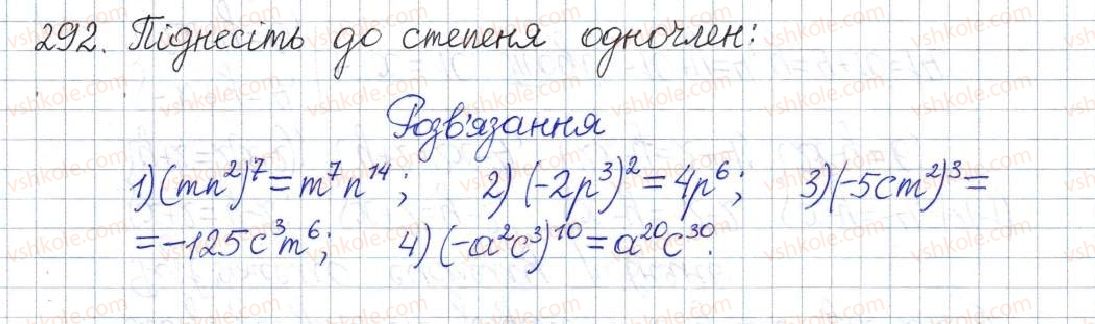 292. Піднесіть до степеня одночлен:
Розв'язання
1) (mn²)⁷ = m⁷n¹⁴; 2) (-2p³)² = 4p⁶; 3) (-5cm²)³ =
= -125c³m⁶; 4) (-a²c³)¹⁰ = a²⁰c³⁰.